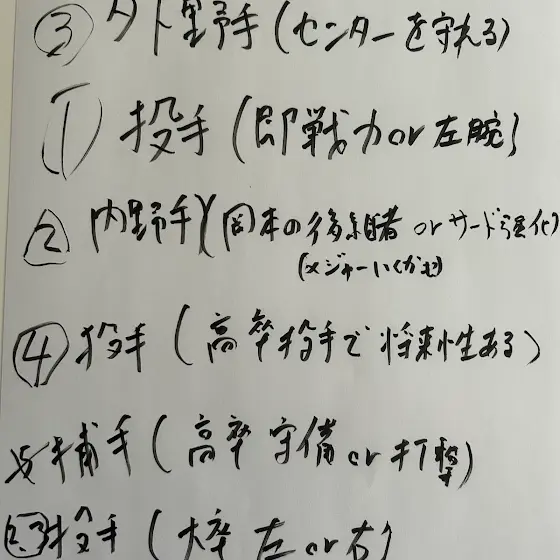 ③ 外野手(センターを守れる)
① 投手(即戦力or左腕)
② 内野手(岡本の後継者 or サード強化)
(メジャーいくかも)
④ 投手(高卒投手で将来性ある)
捕手(高卒 守備 or 打撃)
投手(大卒 左 or 右)